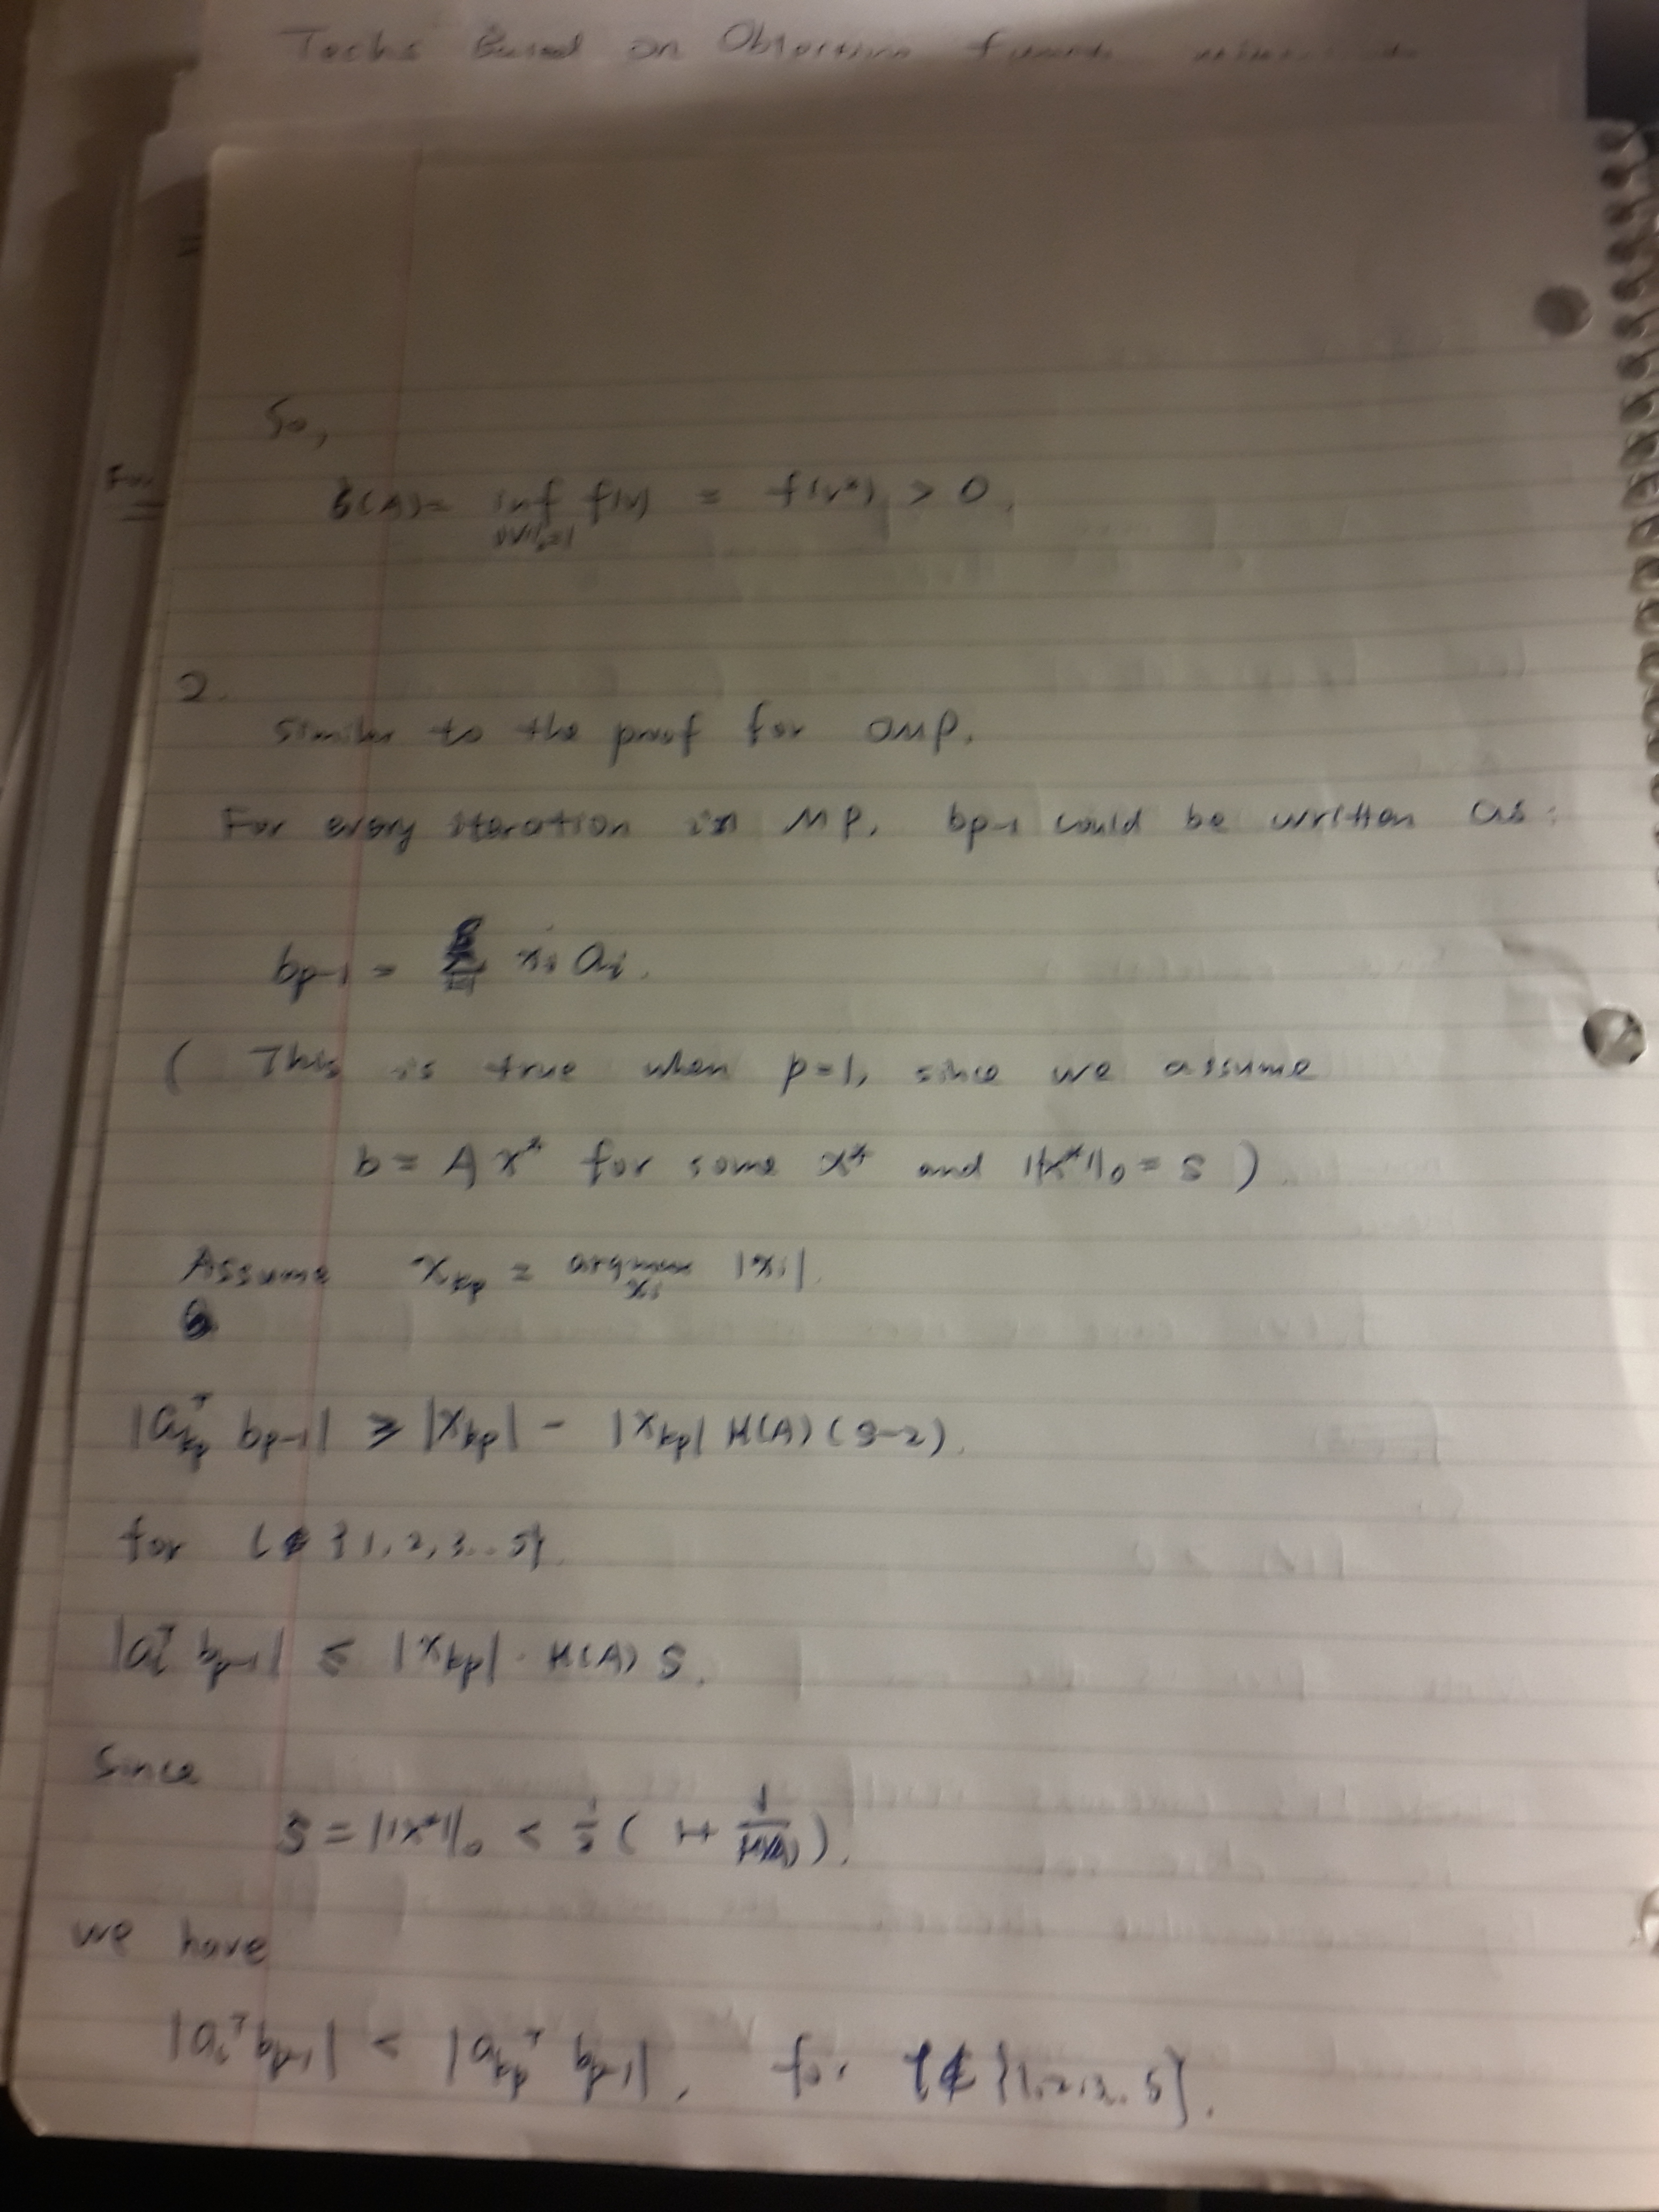 Based on
So,
δ(A) = inf f(v) = f(v*) > 0.
||v||₂=1
2.
Similar to the proof for OMP.
For every iteration in MP, b_{p-1} could be written as:
b_{p-1} = Σ_{i=1}^{s} x_i a_i.
( This is true when p=1, since we assume
b = A x* for some x* and ||x*||₀ = s )
Assume x_{kp} = argmax_{x_i} |x_i|.
|a_{kp}^T b_{p-1}| ≥ |x_{kp}| - |x_{kp}| μ(A) (s-2).
for i ∉ {1, 2, 3.. s}.
|a_i^T b_{p-1}| ≤ |x_{kp}| · μ(A) s.
Since
s = ||x*||₀ < ½ ( 1+ 1/μ(A) ).
we have
|a_i^T b_{p-1}| < |a_{kp}^T b_{p-1}|, for i ∉ {1,2,3.. s}.